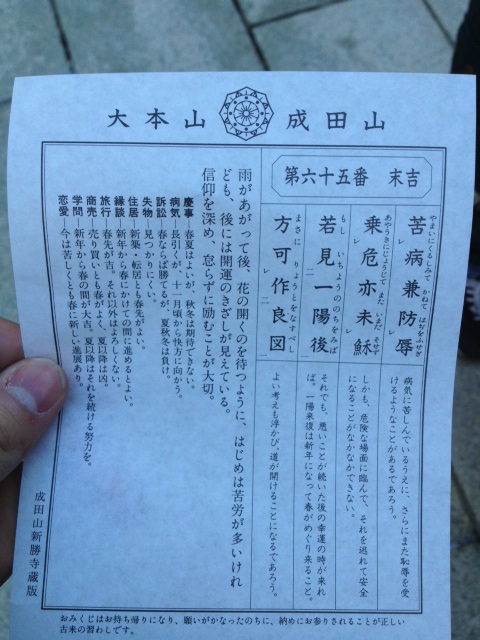 大本山 成田山
第六十五番 末吉
苦病兼防辱
やまいにくるしみて かねて はぢをふせぐ
病気に苦しんでいるうえに、さらにまた恥辱を受
けるようなことがあるであろう。
乗危亦未穌
あやうきにじょうじて また いまだ そせず
しかも、危険な場面に臨んで、それを逃れて安全
なることがなかなかできない。
若見一陽後
もし いちようののちをみば
それでも、悪いことが続いた後の幸運の時が来れ
ば。一陽来復は新年になって春がめぐり来ること。
方可作良図
まさに りょうとをなすべし
よい考えも浮かび、道が開けることになるであろう。
雨があがって後、花の開くのを待つように、はじめは苦労が多いけれ
ども、後には開運のきざしが見えている。
信仰を深め、怠らずに励むことが大切。
慶事 春夏はよいが、秋冬は期待できない。
病気 長引くが、十一月頃から快方に向かう。
訴訟 春ならば勝てるが、夏秋冬は負け。
失物 見つかりにくい。
住居 新築・転居とも春先がよい。
縁談 新年から春にかけての間に進めるとよい。
旅行 春先が吉。それ以外はよろしくない。
商売 売り買いとも春がよく、夏以降は凶。
学問 新年から春の間が大吉。夏以降はそれを続ける努力を。
恋愛 今は苦しくとも春に新しい進展あり。
成田山新勝寺蔵版
おみくじはお持ち帰りになり、願いがかなったのちに、納めにお参りされることが正しい
古来の習わしです。